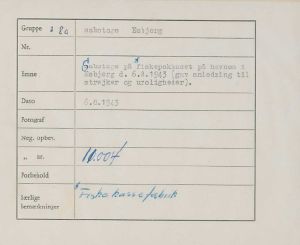 Gruppe 2 8a sabotage Esbjerg
Nr.
Emne Sabotage på fiskepakhuset på havnen i
Esbjerg d. 6.8.1943 (gav anledning til
strejker og uroligheier).
Dato 6.8.1943
Fotograf
Neg. opbev.
„ nr. 10.004
Forbehold
Særlige
bemærkninger Fiskekassefabrik